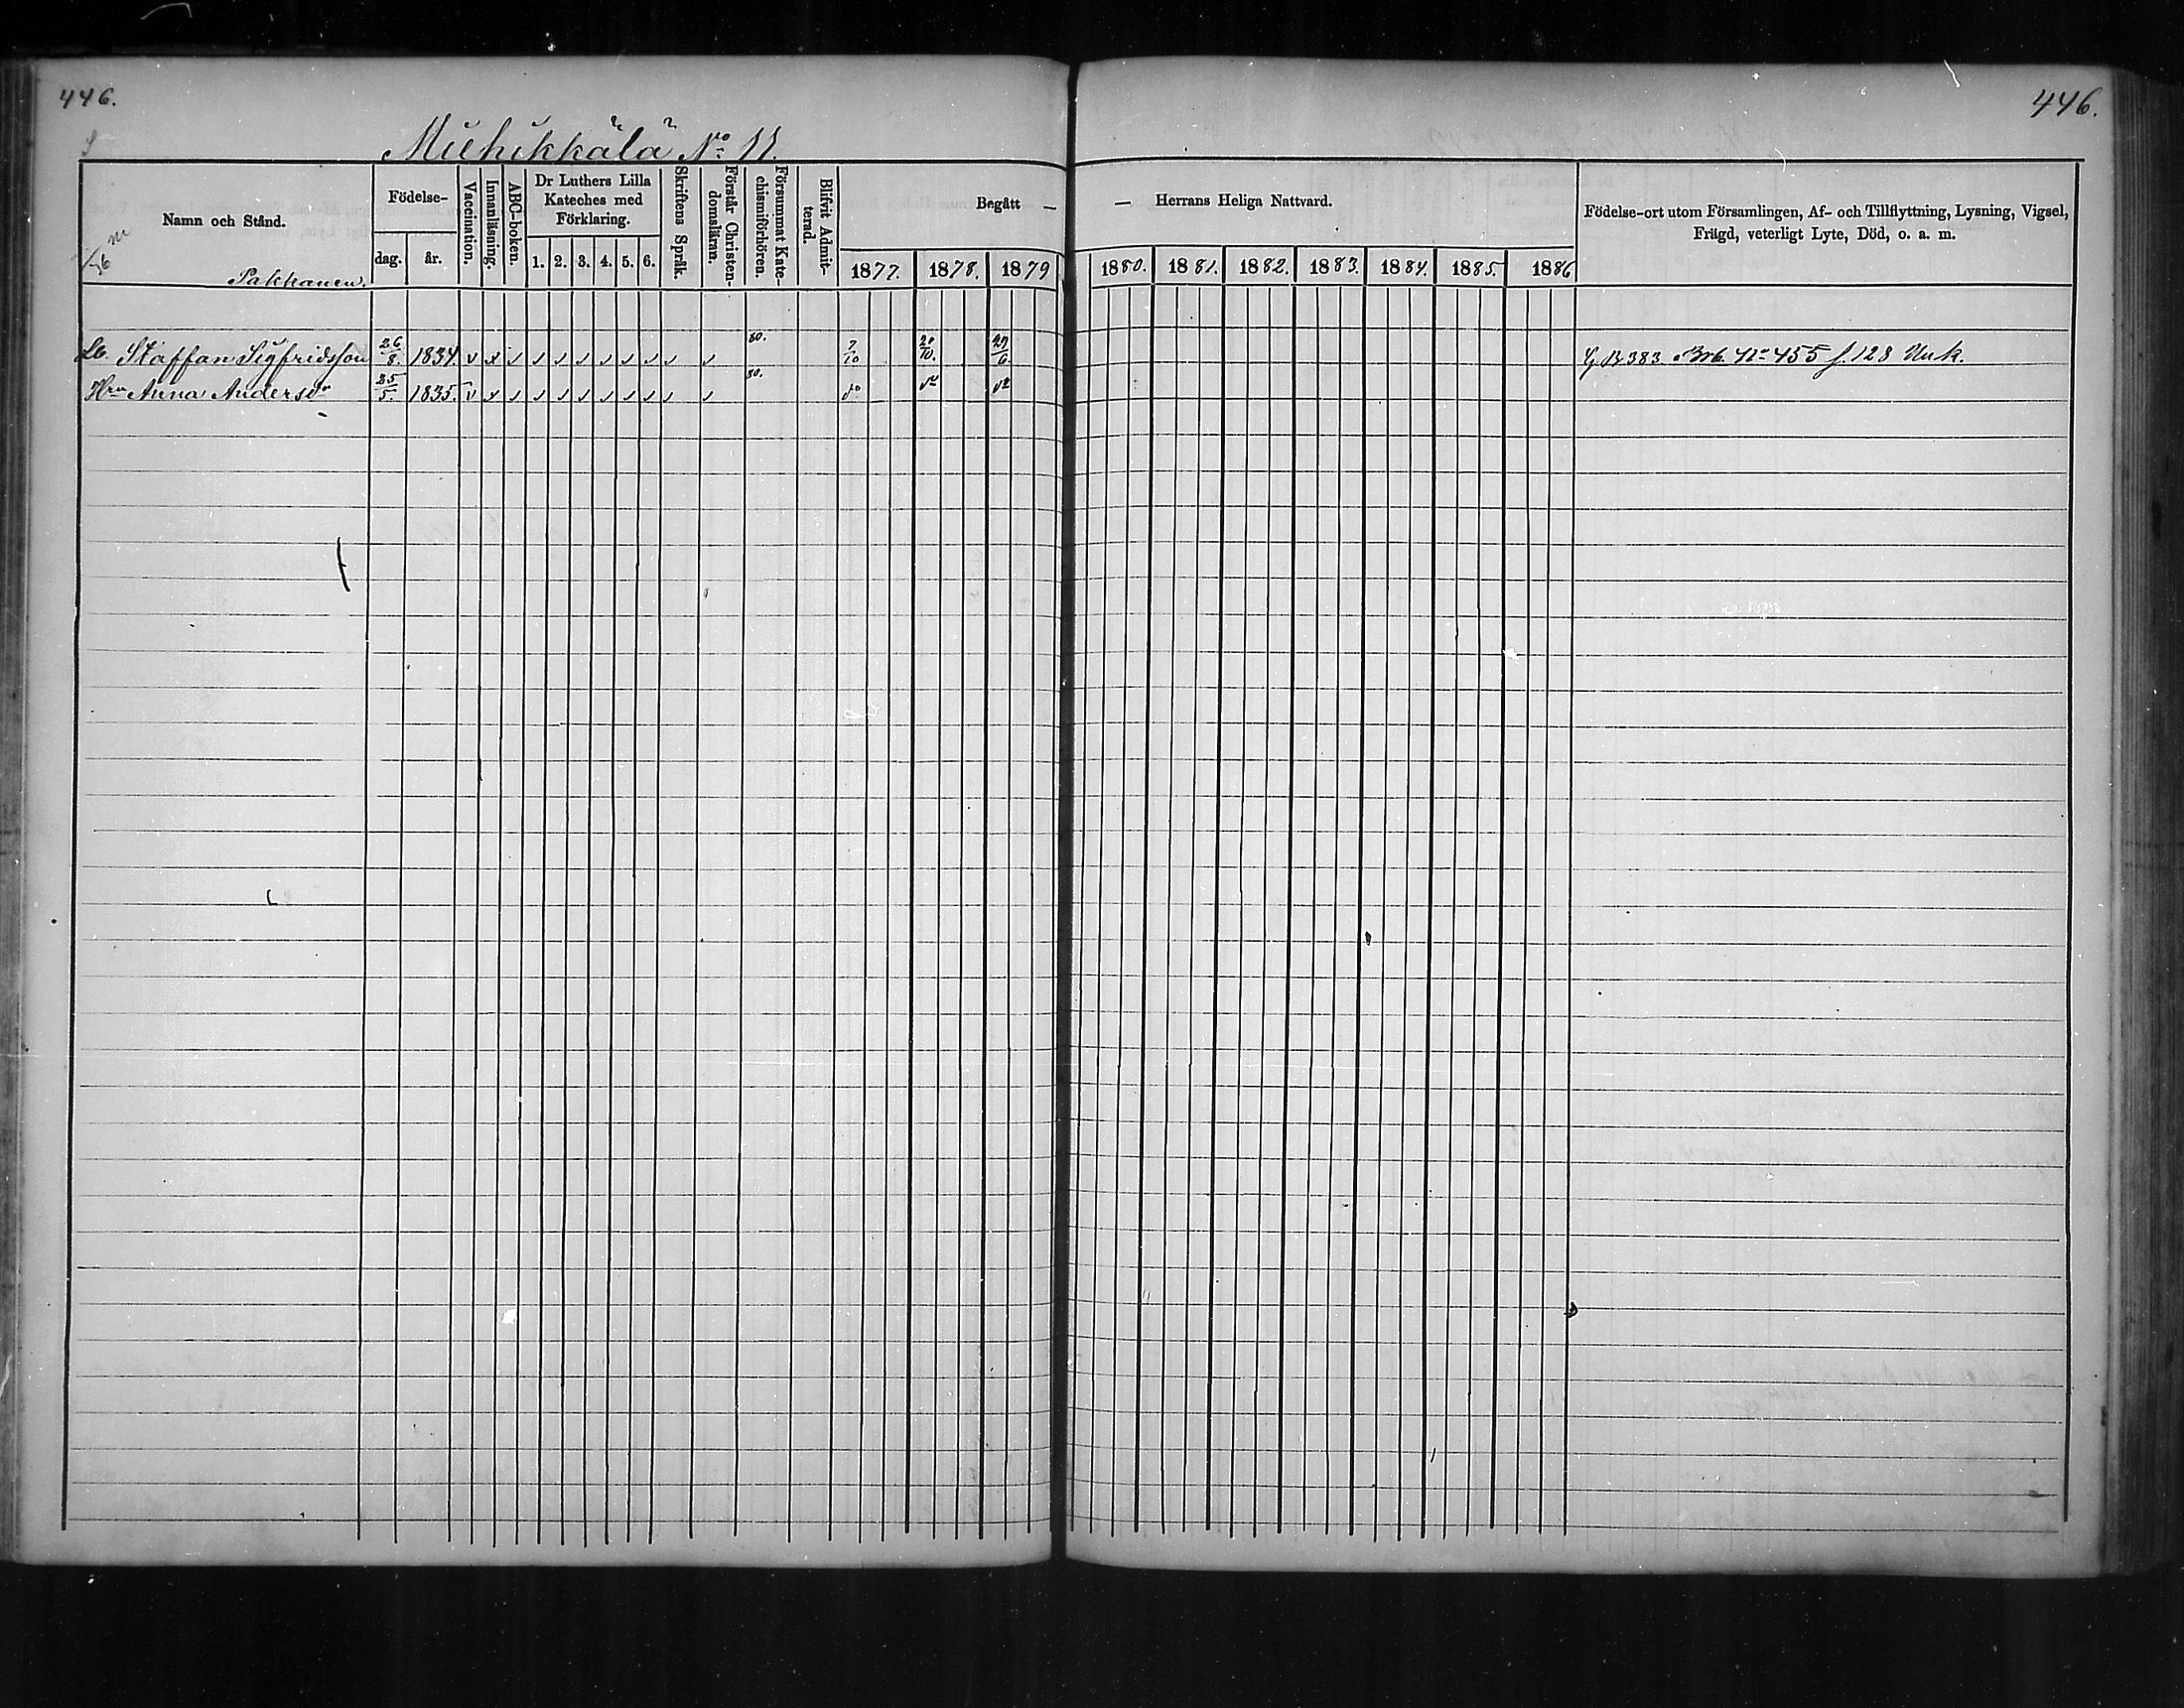 446.
446.
Miehikkälä No 11.
Namn och Stånd.
Pakkanen.
Födelse-
dag.
år.
Vaccination.
Innanläsning.
ABC-boken.
Dr Luthers Lilla
Kateches med
Förklaring.
1. 2. 3. 4. 5. 6.
Skriftens Språk.
Förstår Christen-
domsläran.
Försummat Kate-
chismiförhören.
Blifvit Admit-
terad.
Begått —
— Herrans Heliga Nattvard.
1877. 1878. 1879 1880. 1881. 1882. 1883. 1884. 1885. 1886
Födelse-ort utom Församlingen, Af- och Tillflyttning, Lysning, Vigsel,
Frägd, veterligt Lyte, Död, o. a. m.
Lb. Staffan Sigfridsson 26/8 1834. v x 80. 7/10 20/10. 27/6. G B 383 Brb. No 455 f. 128 Unk.
Hru Anna Andersdr 25/5. 1835. v x 80. do do do